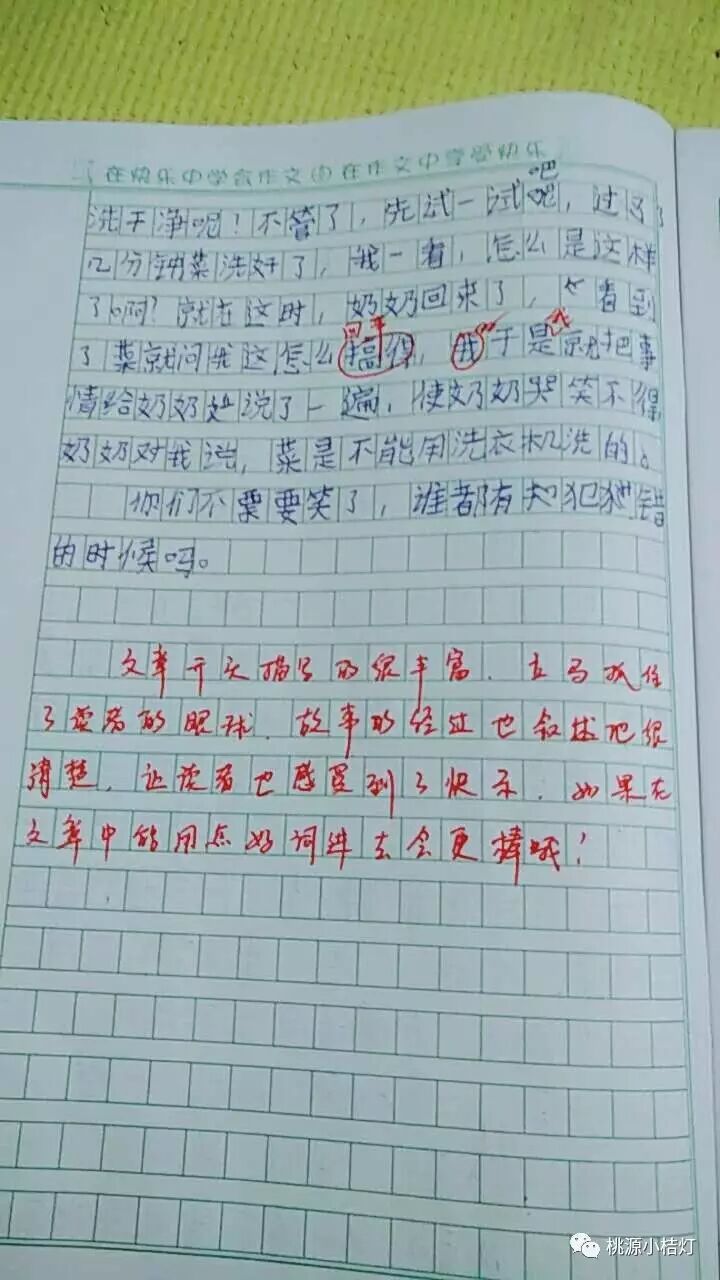 在快乐中学会作文 在作文中享受快乐
吧
洗干净呢！不管了，先试一试呢，过了
几分钟菜洗好了，我一看，怎么是这样
了啊？就在这时，奶奶回来了，一看到
回事
了菜就问我这怎么搞得，我于是我就把事
情给奶奶说了一遍，使奶奶哭笑不得
奶奶对我说，菜是不能用洗衣机洗的。
你们不要笑了，谁都有犯错
的时候吗。
文章开头描写的很丰富，立马抓住
了读者的眼球，故事的经过也叙述地很
清楚，让读者也感受到了快乐，如果在
文章中能用点好词佳句会更棒哦！
桃源小桔灯